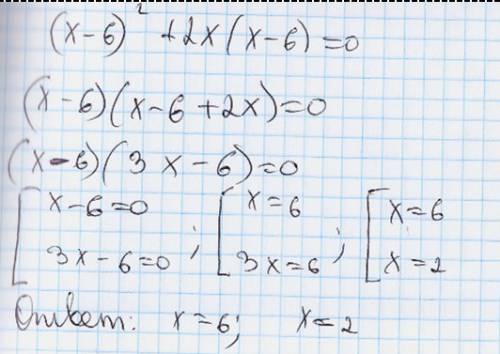 (x-6)² + 2x(x-6)=0
(x-6)(x-6+2x)=0
(x-6)(3x-6)=0
[x-6=0 ; [x=6 ; [x=6
3x-6=0 3x=6 x=2
Ответ: x=6; x=2